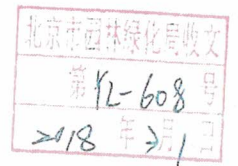 北京市园林绿化局收文
第 YL-608 号
2018 年 2月1日